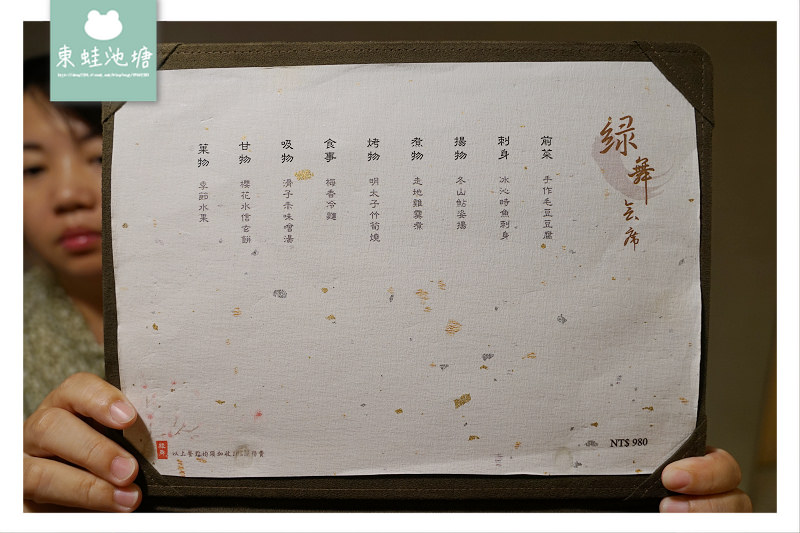 東蛙池塘
綠舞會席
前菜 手作毛豆豆腐
刺身 冰沁時魚刺身
揚物 冬山鮎姿揚
煮物 走地雞霙煮
烤物 明太子竹筍燒
食事 梅香冷麵
吸物 滑子朱味噌湯
甘物 櫻花水信玄餅
菓物 季節水果
NT$ 980
以上餐點均須加收10%服務費